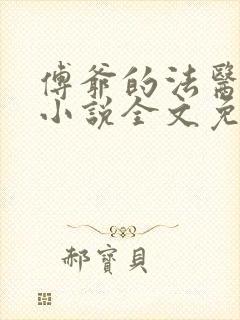 傅爺的法醫
小說全文免
郝寶貝